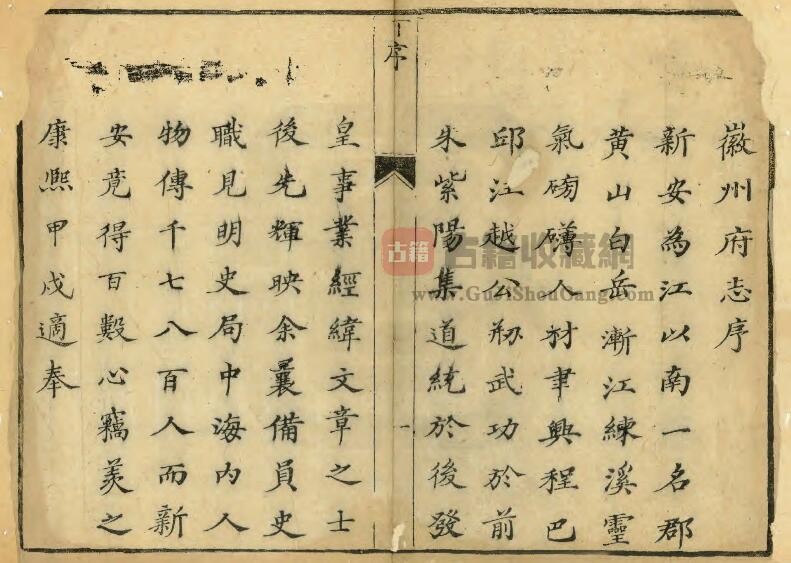 徽州府志序
新安為江以南一名郡
黄山白岳漸江練溪靈
氣磅礴人材聿興程巴
邱江越公剏武功於前
朱紫陽集道統於後發
序
一
皇事業經緯文章之士
後先輝映余曩備員史
職見明史局中海内人
物傳千七八百人而新
安竟得百數心竊羡之
康熙甲戌適奉
古籍
古籍收藏網
www.GuJiShouCang.com